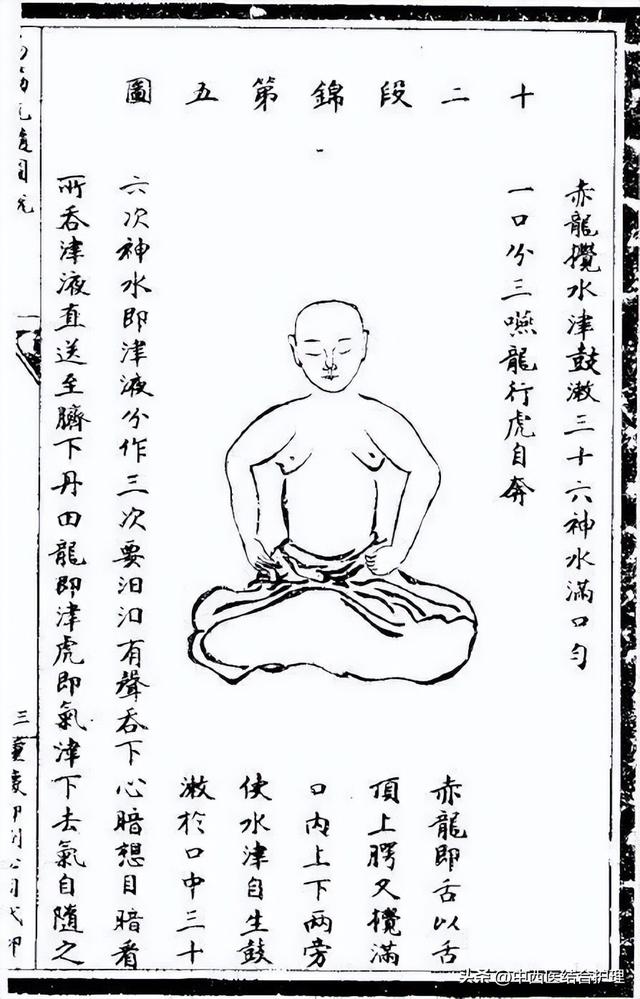 十二段錦第五圖
赤龍攪水津鼓漱三十六神水滿口勻
一口分三嚥龍行虎自奔
赤龍即舌以舌
頂上腭又攪滿
口內上下兩旁
使水津自生鼓
漱於口中三十
六次神水即津液分作三次要汩汩有聲吞下心暗想目暗看
所吞津液直送至臍下丹田龍即津虎即氣津下去氣自隨之
头条@中西医结合护理